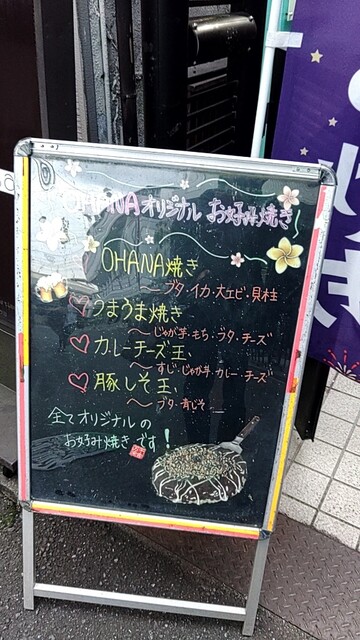 OHANAオリジナル お好み焼き
OHANA焼き
〜ブタ・イカ・大エビ・貝柱
♡うまうま焼き
〜じゃが芋・もち・ブタ・チーズ
♡カレーチーズ王、
〜すじ・じゃが芋・カレー・チーズ
♡豚しそ王、
〜ブタ・青じそ
全てオリジナルの
お好み焼きです!